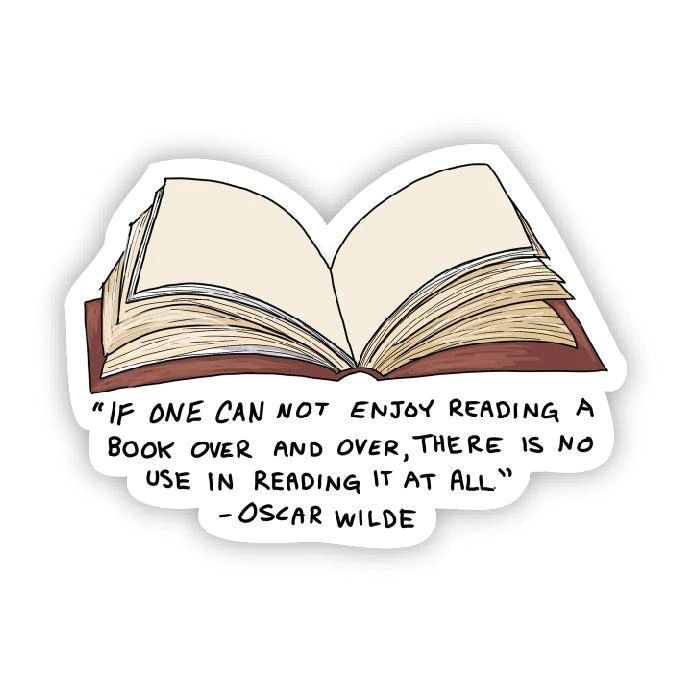 "IF ONE CAN NOT ENJOY READING A
BOOK OVER AND OVER, THERE IS NO
USE IN READING IT AT ALL."
-OSCAR WILDE